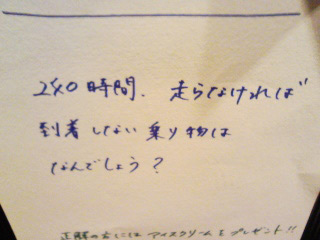 240時間、走らなければ
到着しない乗り物は
なんでしょう？
正解の方にはアイスクリームをプレゼント!!